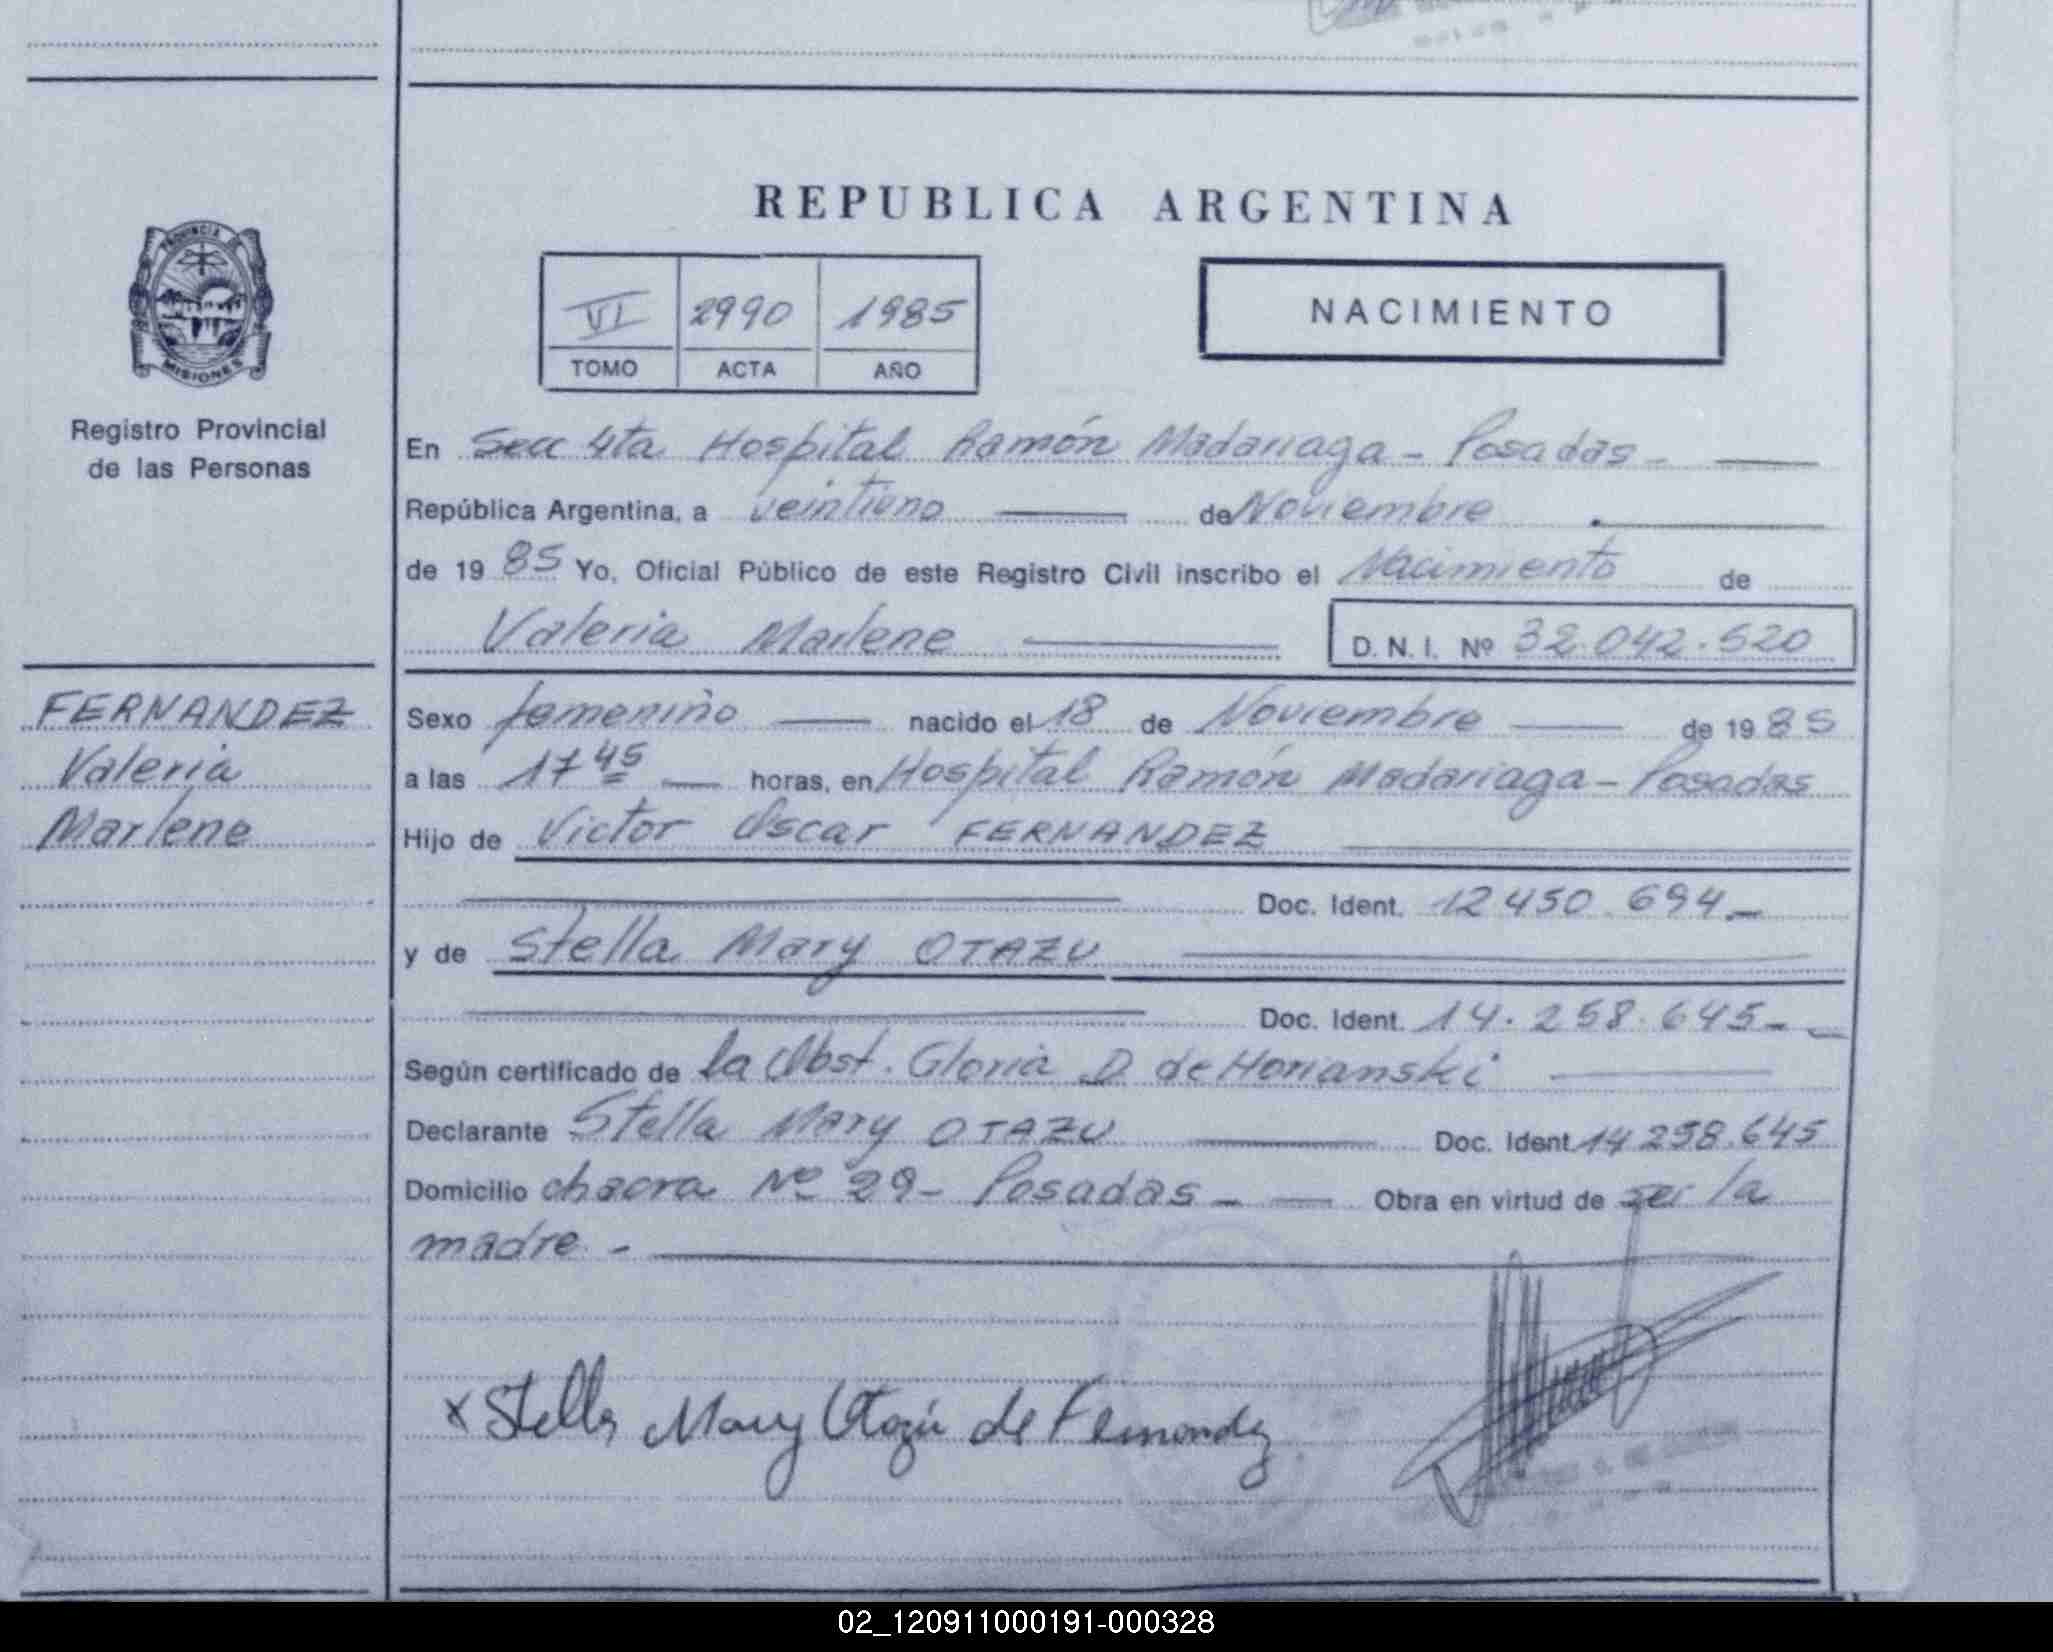 REPUBLICA ARGENTINA
PROVINCIA DE
MISIONES
Registro Provincial
de las Personas
VI 2990 1985
TOMO ACTA AÑO
NACIMIENTO
En Secc 4ta Hospital Ramón Madariaga - Posadas -
República Argentina, a veintiuno de Noviembre
de 1985 Yo, Oficial Público de este Registro Civil inscribo el Nacimiento de
Valeria Marlene D. N. I. Nº 32.042.520
FERNANDEZ
Valeria
Marlene
Sexo femenino nacido el 18 de Noviembre de 1985
a las 17 45 horas, en Hospital Ramón Madariaga - Posadas
Hijo de Victor Oscar FERNANDEZ
Doc. Ident. 12 450 694 -
y de Stella Mary OTAZU
Doc. Ident. 14.258.645 -
Según certificado de la Obst. Gloria D de Horianski
Declarante Stella Mary OTAZU Doc. Ident. 14 258.645
Domicilio chacra Nº 29 - Posadas - Obra en virtud de ser la
madre -
x Stella Mary Otazú de Fernandez
02_120911000191-000328